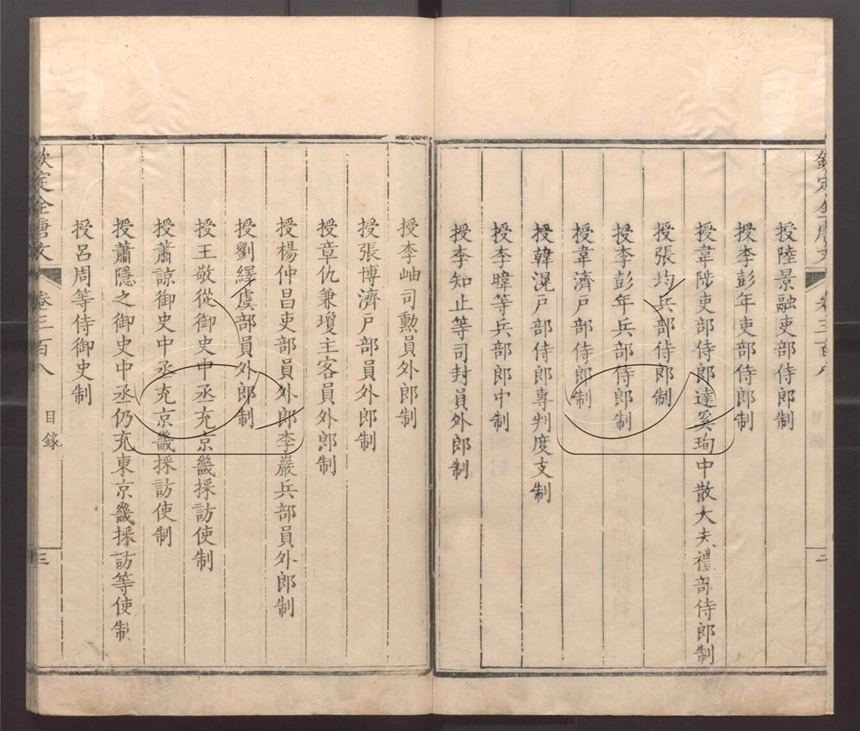 欽定全唐文 卷三百八 二
授陸景融吏部侍郎制
授李彭年吏部侍郎制
授韋陟吏部侍郎達奚珣中散大夫禮部侍郎制
授張均兵部侍郎制
授李彭年兵部侍郎制
授韋濟戸部侍郎制
授韓滉戸部侍郎專判度支制
授李暐等兵部郎中制
授李知止等司封員外郎制
授李岫司勲員外郎制
授張博濟戸部員外郎制
授章仇兼瓊主客員外郎制
授楊仲昌吏部員外郎李巖兵部員外郎制
授劉繹虞部員外郎制
授王敬從御史中丞充京畿採訪使制
授蕭諒御史中丞充京畿採訪使制
授蕭隱之御史中丞仍充東京畿採訪等使制
授呂周等侍御史制
欽定全唐文 卷三百八 目錄 三